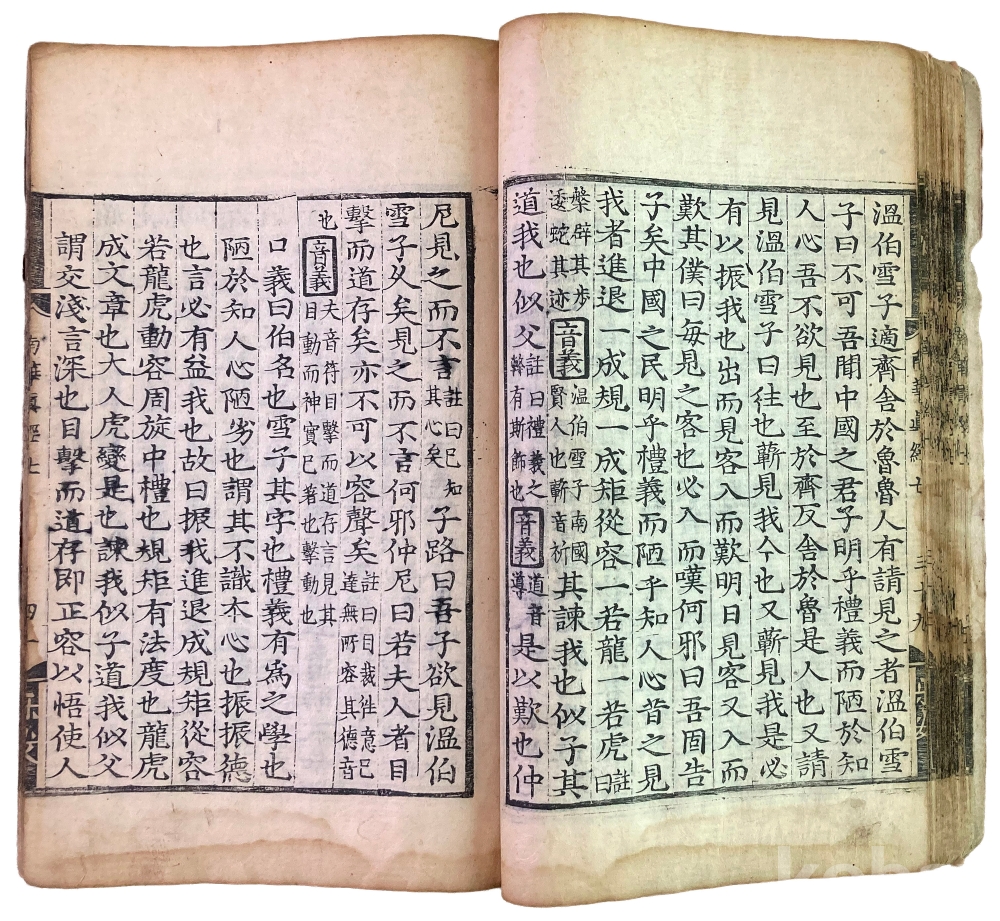 溫伯雪子適齊舍於魯魯人有請見之者溫伯雪
子曰不可吾聞中國之君子明乎禮義而陋於知
人心吾不欲見也至於齊反舍於魯是人也又請
見溫伯雪子曰往也蘄見我今也又蘄見我是必
有以振我也出而見客入而歎明日見客又入而
歎其僕曰每見之客也必入而嘆何邪曰吾固告
子矣中國之民明乎禮義而陋乎知人心昔之見
我者進退一成規一成矩從容一若龍一若虎註曰
槃辟其步逶蛇其迹音義溫伯雪子南國賢人也蘄音祈其諫我也似子其
道我也似父註曰禮義之斃有斯飾也音義道音導是以歎也仲
尼見之而不言註曰已知其心矣子路曰吾子欲見溫伯
雪子久矣見之而不言何邪仲尼曰若夫人者目
擊而道存矣亦不可以容聲矣註曰目裁往意已達無所容其德音
也音義夫音符目擊而道存言見其目動而神實已著也擊動也
口義曰伯名也雪子其字也禮義有爲之學也
陋於知人心陋劣也謂其不識本心也振振德
也言必有益我也故曰振我進退成規矩從容
若龍虎動容周旋中禮也規矩有法度也龍虎
成文章也大人虎變是也諫我似子道我似父
謂交淺言深也目擊而道存即正容以悟使人
南華眞經七